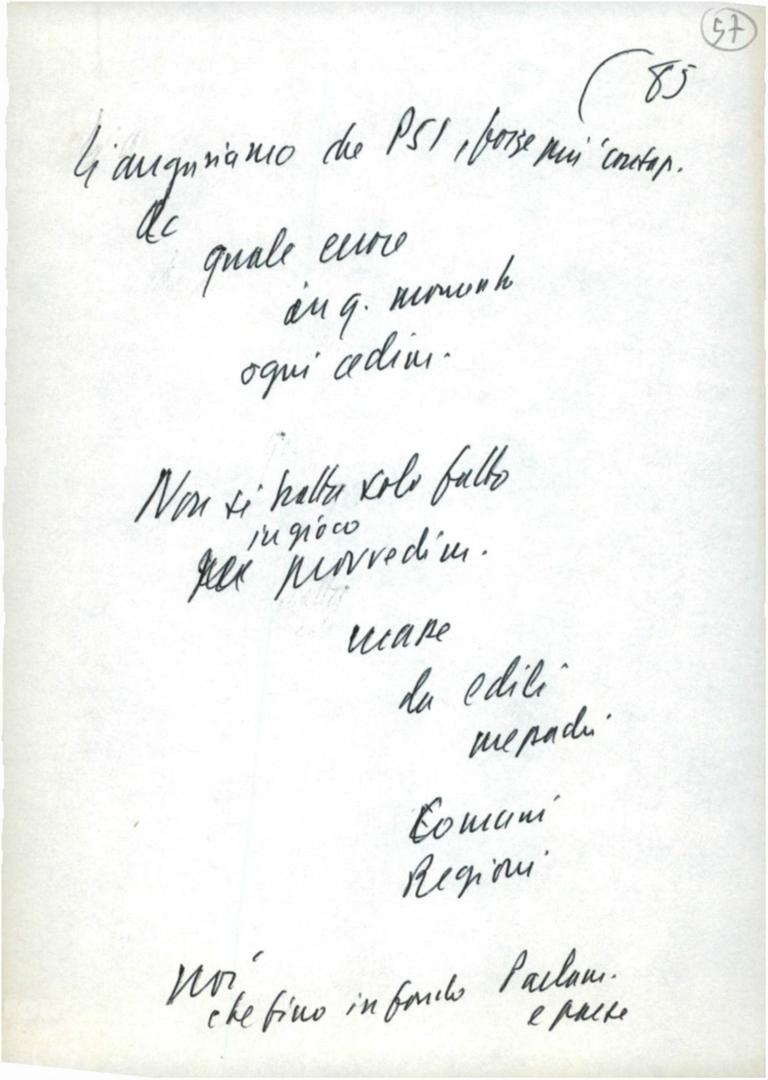 57
85
Ci auguriamo che PSI, forse più consap.
DC
quale errore
in q. momento
ogni cedim.
Non si tratta solo fatto
in gioco
provvedim.
masse
da edili
Comuni
Regioni
noi
che fino in fondo Parlam.
e paese